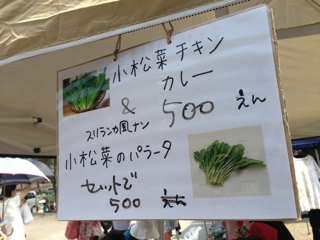 小松菜チキン
カレー
&
500 えん
スリランカ風ナン
小松菜のパラータ
セットで
500 えん